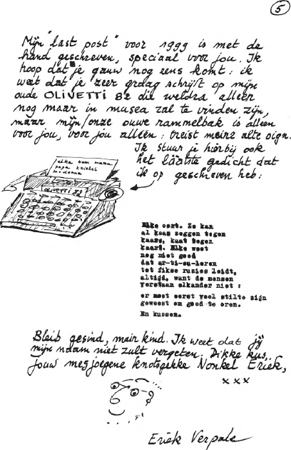 5
Mijn "last post" voor 1999 is met de
hand geschreven, speciaal voor jou. Ik
hoop dat je gauw nog eens komt: ik
weet dat je zeer graag schrijft op mijn
oude OLIVETTI 82 die weldra alleen
nog maar in musea zal te vinden zijn,
maar mijn/onze ouwe rammelbak is alleen
voor jou, voor jou alleen: treist meine alte oign.
Ik stuur je hierbij ook
het laatste gedicht dat
ik op geschreven heb:
Elke eert. Ze kan
al kaas zeggen tegen
kaars, kunt tegen
kaart. Elke weet
nog niet goed
dat ar-ti-cu-leren
tot fikse ruzies leidt,
altijd, want de mensen
verstaan elkander niet:
er moet eerst veel stilte zijn
geweest om goed te oren.
En kussen.
Bleib gesind, mein kind. Ik weet dat jij
mijn naam niet zult vergeten. Dikke kus,
jouw knotsgekke Nonkel Eriek,
xxx
Eriek Verpale